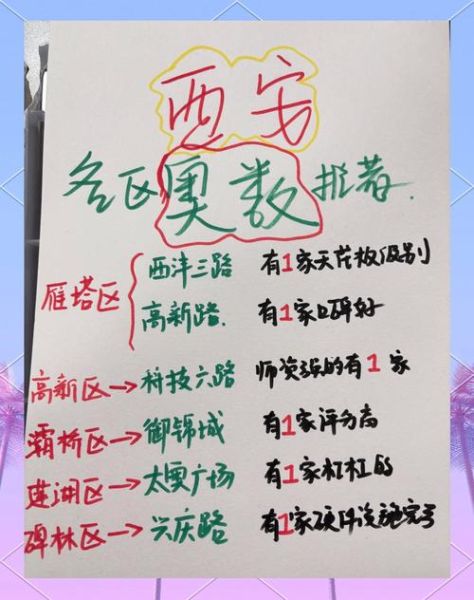 西安
各区奥数推荐.
雁塔区 西沣三路 有1家天花板级别
高新路. 有1家口碑好
高新区→科技六路 师资强的有1家
灞桥区→御锦城 有1家评分高
莲湖区→太奥广场 有1家杠杠的
碑林区→兴庆路 有1家硬件设施完善